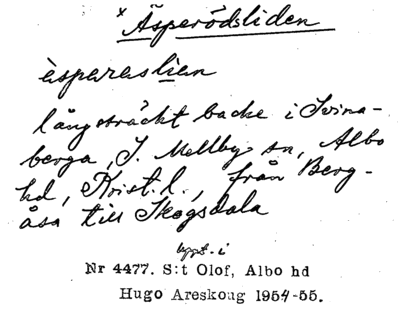 x Äsperödsliden
èsperaslien
långsträckt backe i Svina-
berga, S. Mellby sn, Albo
hd, Krist. l., från Berg-
åsa till Skogsdala
uppt. i
Nr 4477. S:t Olof, Albo hd
Hugo Areskoug 1954-55.